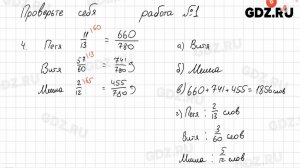 GDZ.RU
Проверьте себя работа №1
4. Петя 11/13 ^60 = 660/780
Витя 57/60 ^13 = 741/780
Миша 7/12 ^65 = 455/780
а) Витя
б) Миша
в) 660+741+455=1856 слов
г) Петя: 2/13 слов
Витя: 3/60 слов
Миша: 5/12 слов
GDZ.RU